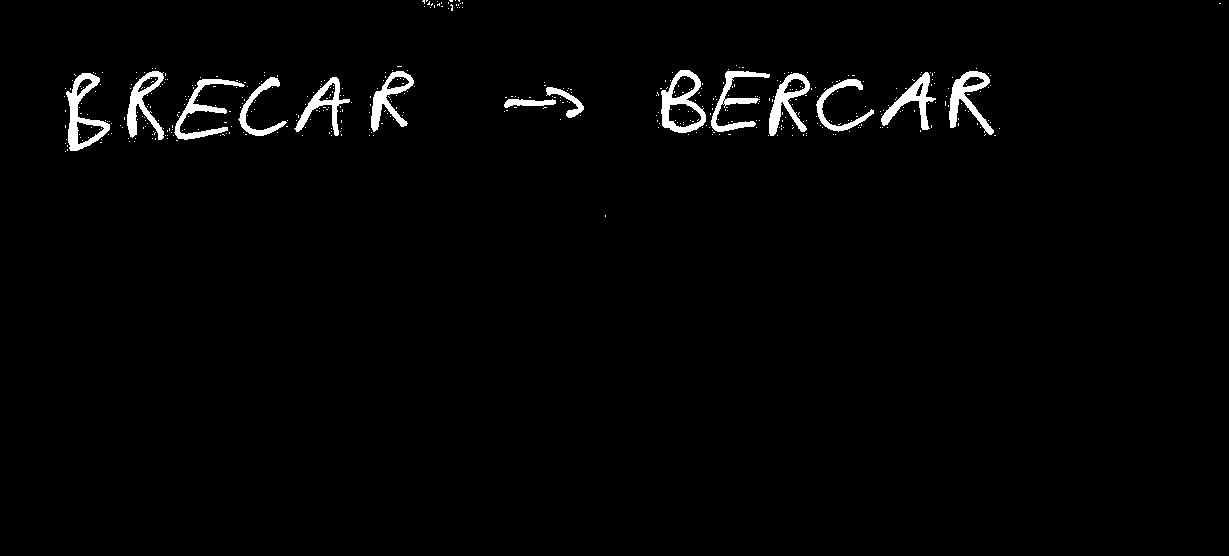 BRECAR → BERCAR